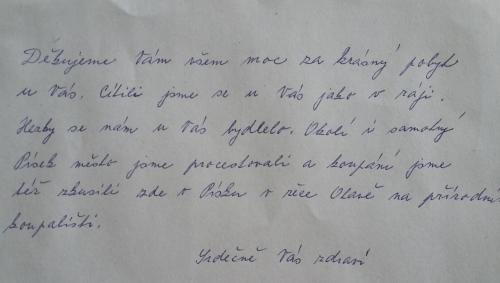 Děkujeme Vám všem moc za krásný pobyt
u Vás. Cítili jsme se u Vás jako v ráji.
Hezky se nám u Vás bydlelo. Okolí i samotný
Písek město jsme procestovali a koupání jsme
též zkusili zde v Písku v řece Otavě na přírodní
koupališti.
Srdečně Vás zdraví